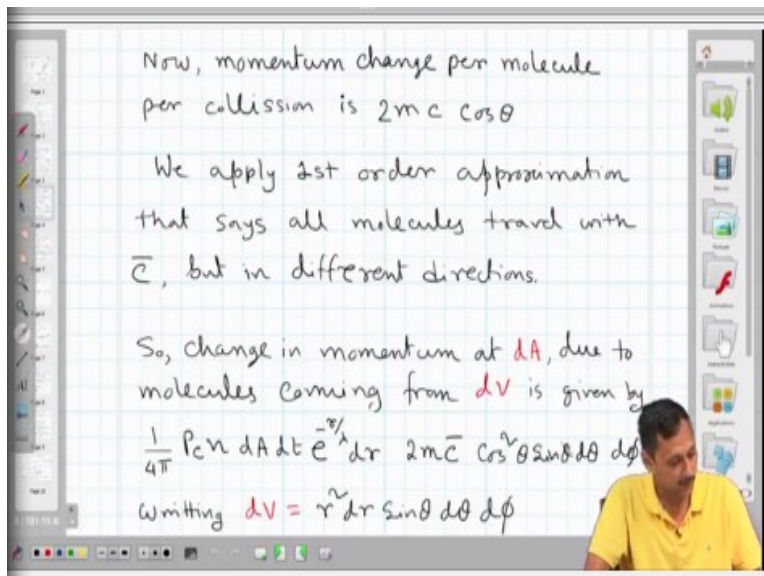 Now, momentum change per molecule
per collission is 2mc Cosθ
We apply 1st order approximation
that says all molecules travel with
c̅, but in different directions.
So, change in momentum at dA, due to
molecules coming from dV is given by
1/4π P_c n dA dt e^{-r/λ} dr 2m c̅ Cos²θ Sinθ dθ dϕ
writting dV = r² dr Sinθ dθ dϕ